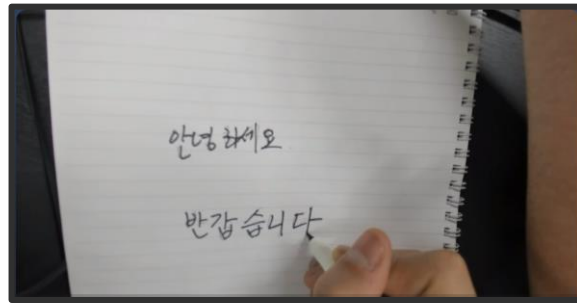 안녕하세요
반갑습니다